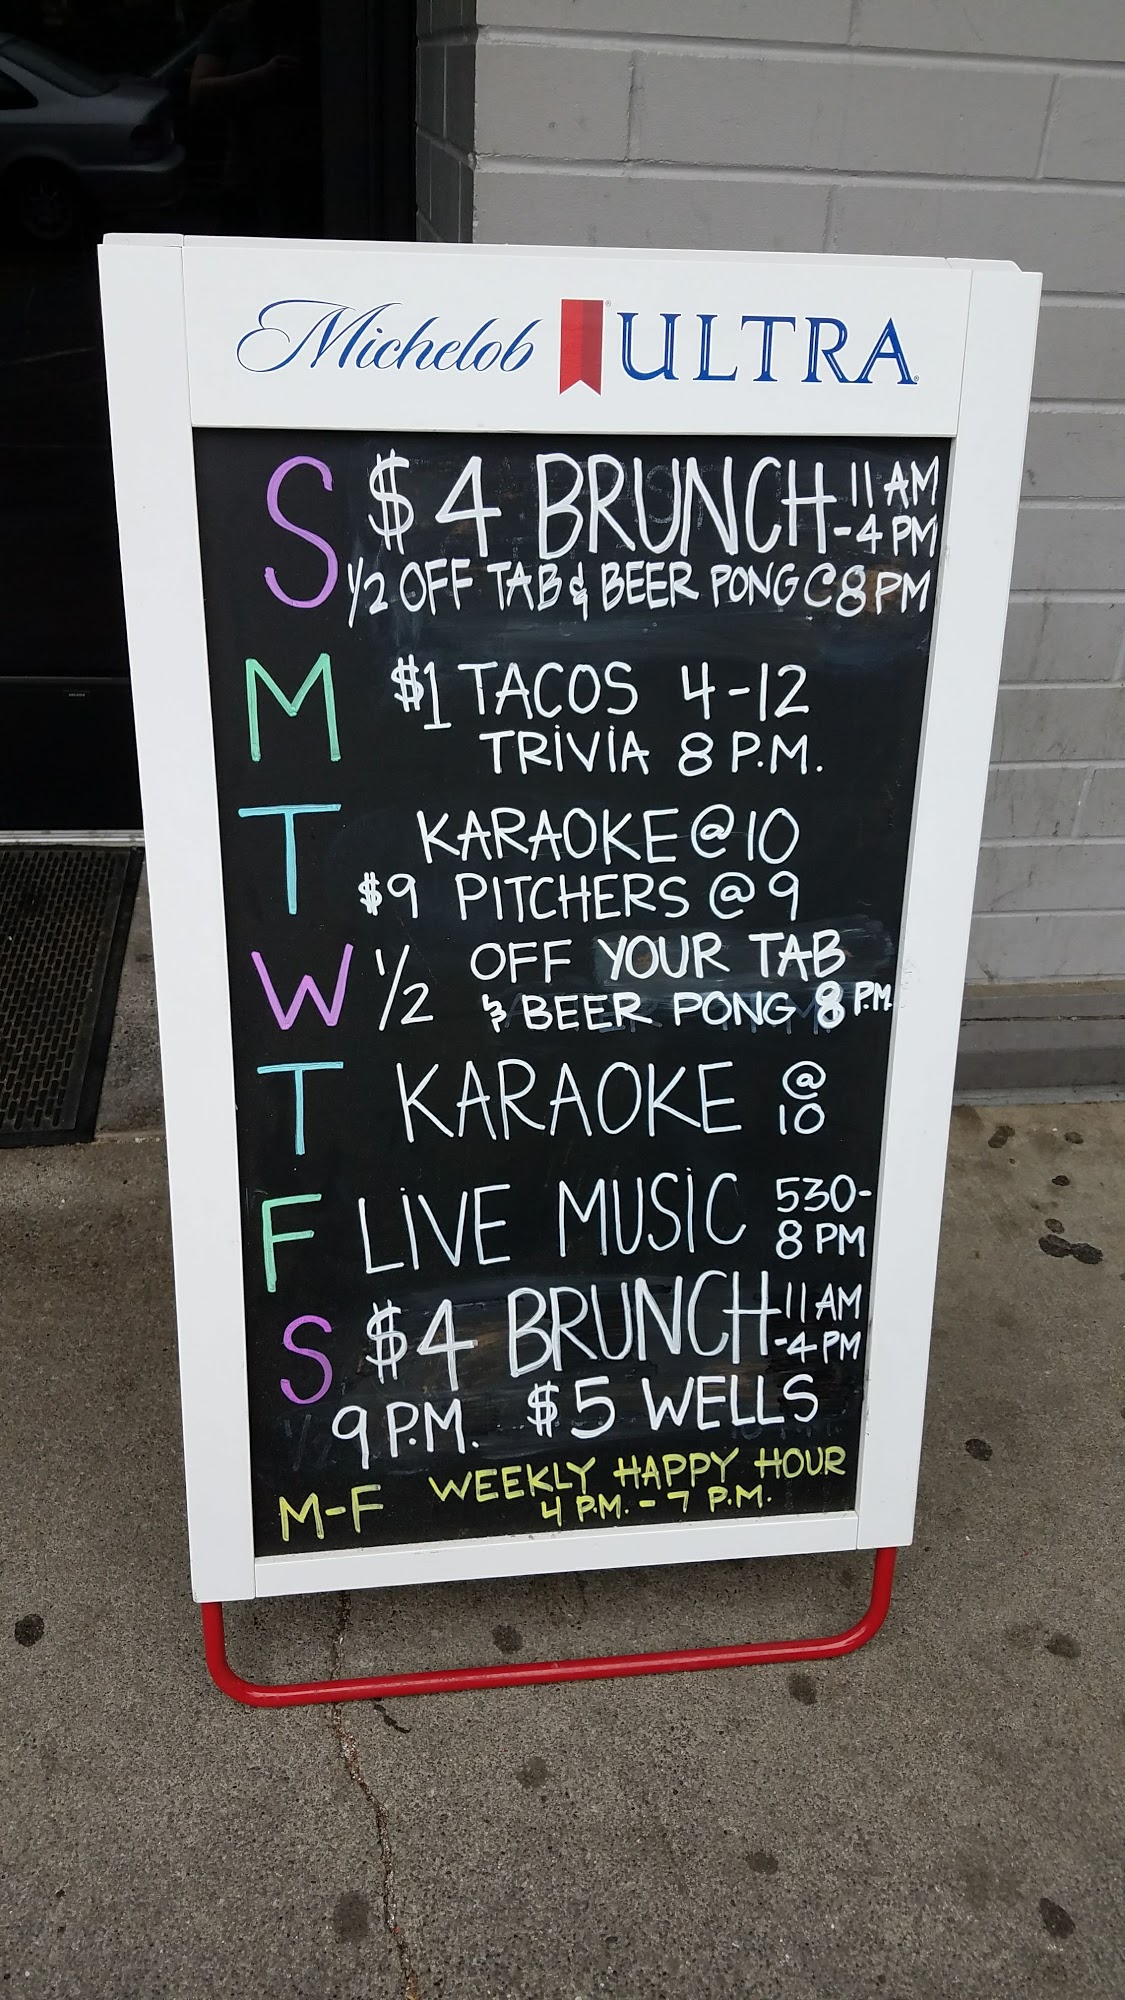 Michelob ULTRA
S $4 BRUNCH 11 AM
- 4 PM
1/2 OFF TAB & BEER PONG @ 8 PM
M $1 TACOS 4-12
TRIVIA 8 P.M.
T KARAOKE @ 10
$9 PITCHERS @ 9
W 1/2 OFF YOUR TAB
& BEER PONG 8 P.M.
T KARAOKE @
10
F LIVE MUSIC 530-
8 PM
S $4 BRUNCH 11 AM
-4 PM
9 P.M. $5 WELLS
M-F WEEKLY HAPPY HOUR
4 P.M. - 7 P.M.